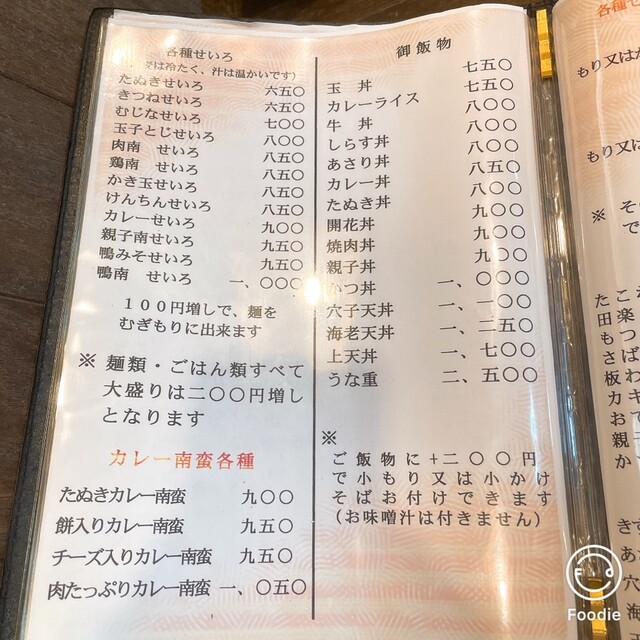 各種せいろ
は冷たく、汁は温かいです)
たぬきせいろ 六五〇
きつねせいろ 六五〇
むじなせいろ 七〇〇
玉子とじせいろ 八〇〇
肉南 せいろ 八五〇
鶏南 せいろ 八五〇
かき玉せいろ 八五〇
けんちんせいろ 八五〇
カレーせいろ 九〇〇
親子南せいろ 九五〇
鴨みそせいろ 九五〇
鴨南 せいろ 一、〇〇〇
100円増しで、麺を
むぎもりに出来ます
※ 麺類・ごはん類すべて
大盛りは二〇〇円増し
となります
カレー南蛮各種
たぬきカレー南蛮 九〇〇
餅入りカレー南蛮 九五〇
チーズ入りカレー南蛮 九五〇
肉たっぷりカレー南蛮 一、〇五〇
御飯物
玉 丼 七五〇
カレーライス 七五〇
牛 丼 八〇〇
しらす丼 八〇〇
あさり丼 八〇〇
カレー丼 八五〇
たぬき丼 八〇〇
開花丼 九〇〇
焼肉丼 九〇〇
親子丼 九〇〇
かつ丼 一、〇〇〇
穴子天丼 一、一〇〇
海老天丼 一、二五〇
上天丼 一、七〇〇
うな重 二、五〇〇
※
ご飯物に+二〇〇円
で小もり又は小かけ
そばお付けできます
(お味噌汁は付きません)
各種セ
もり又はか
もり又は
※ その
で
Foodie